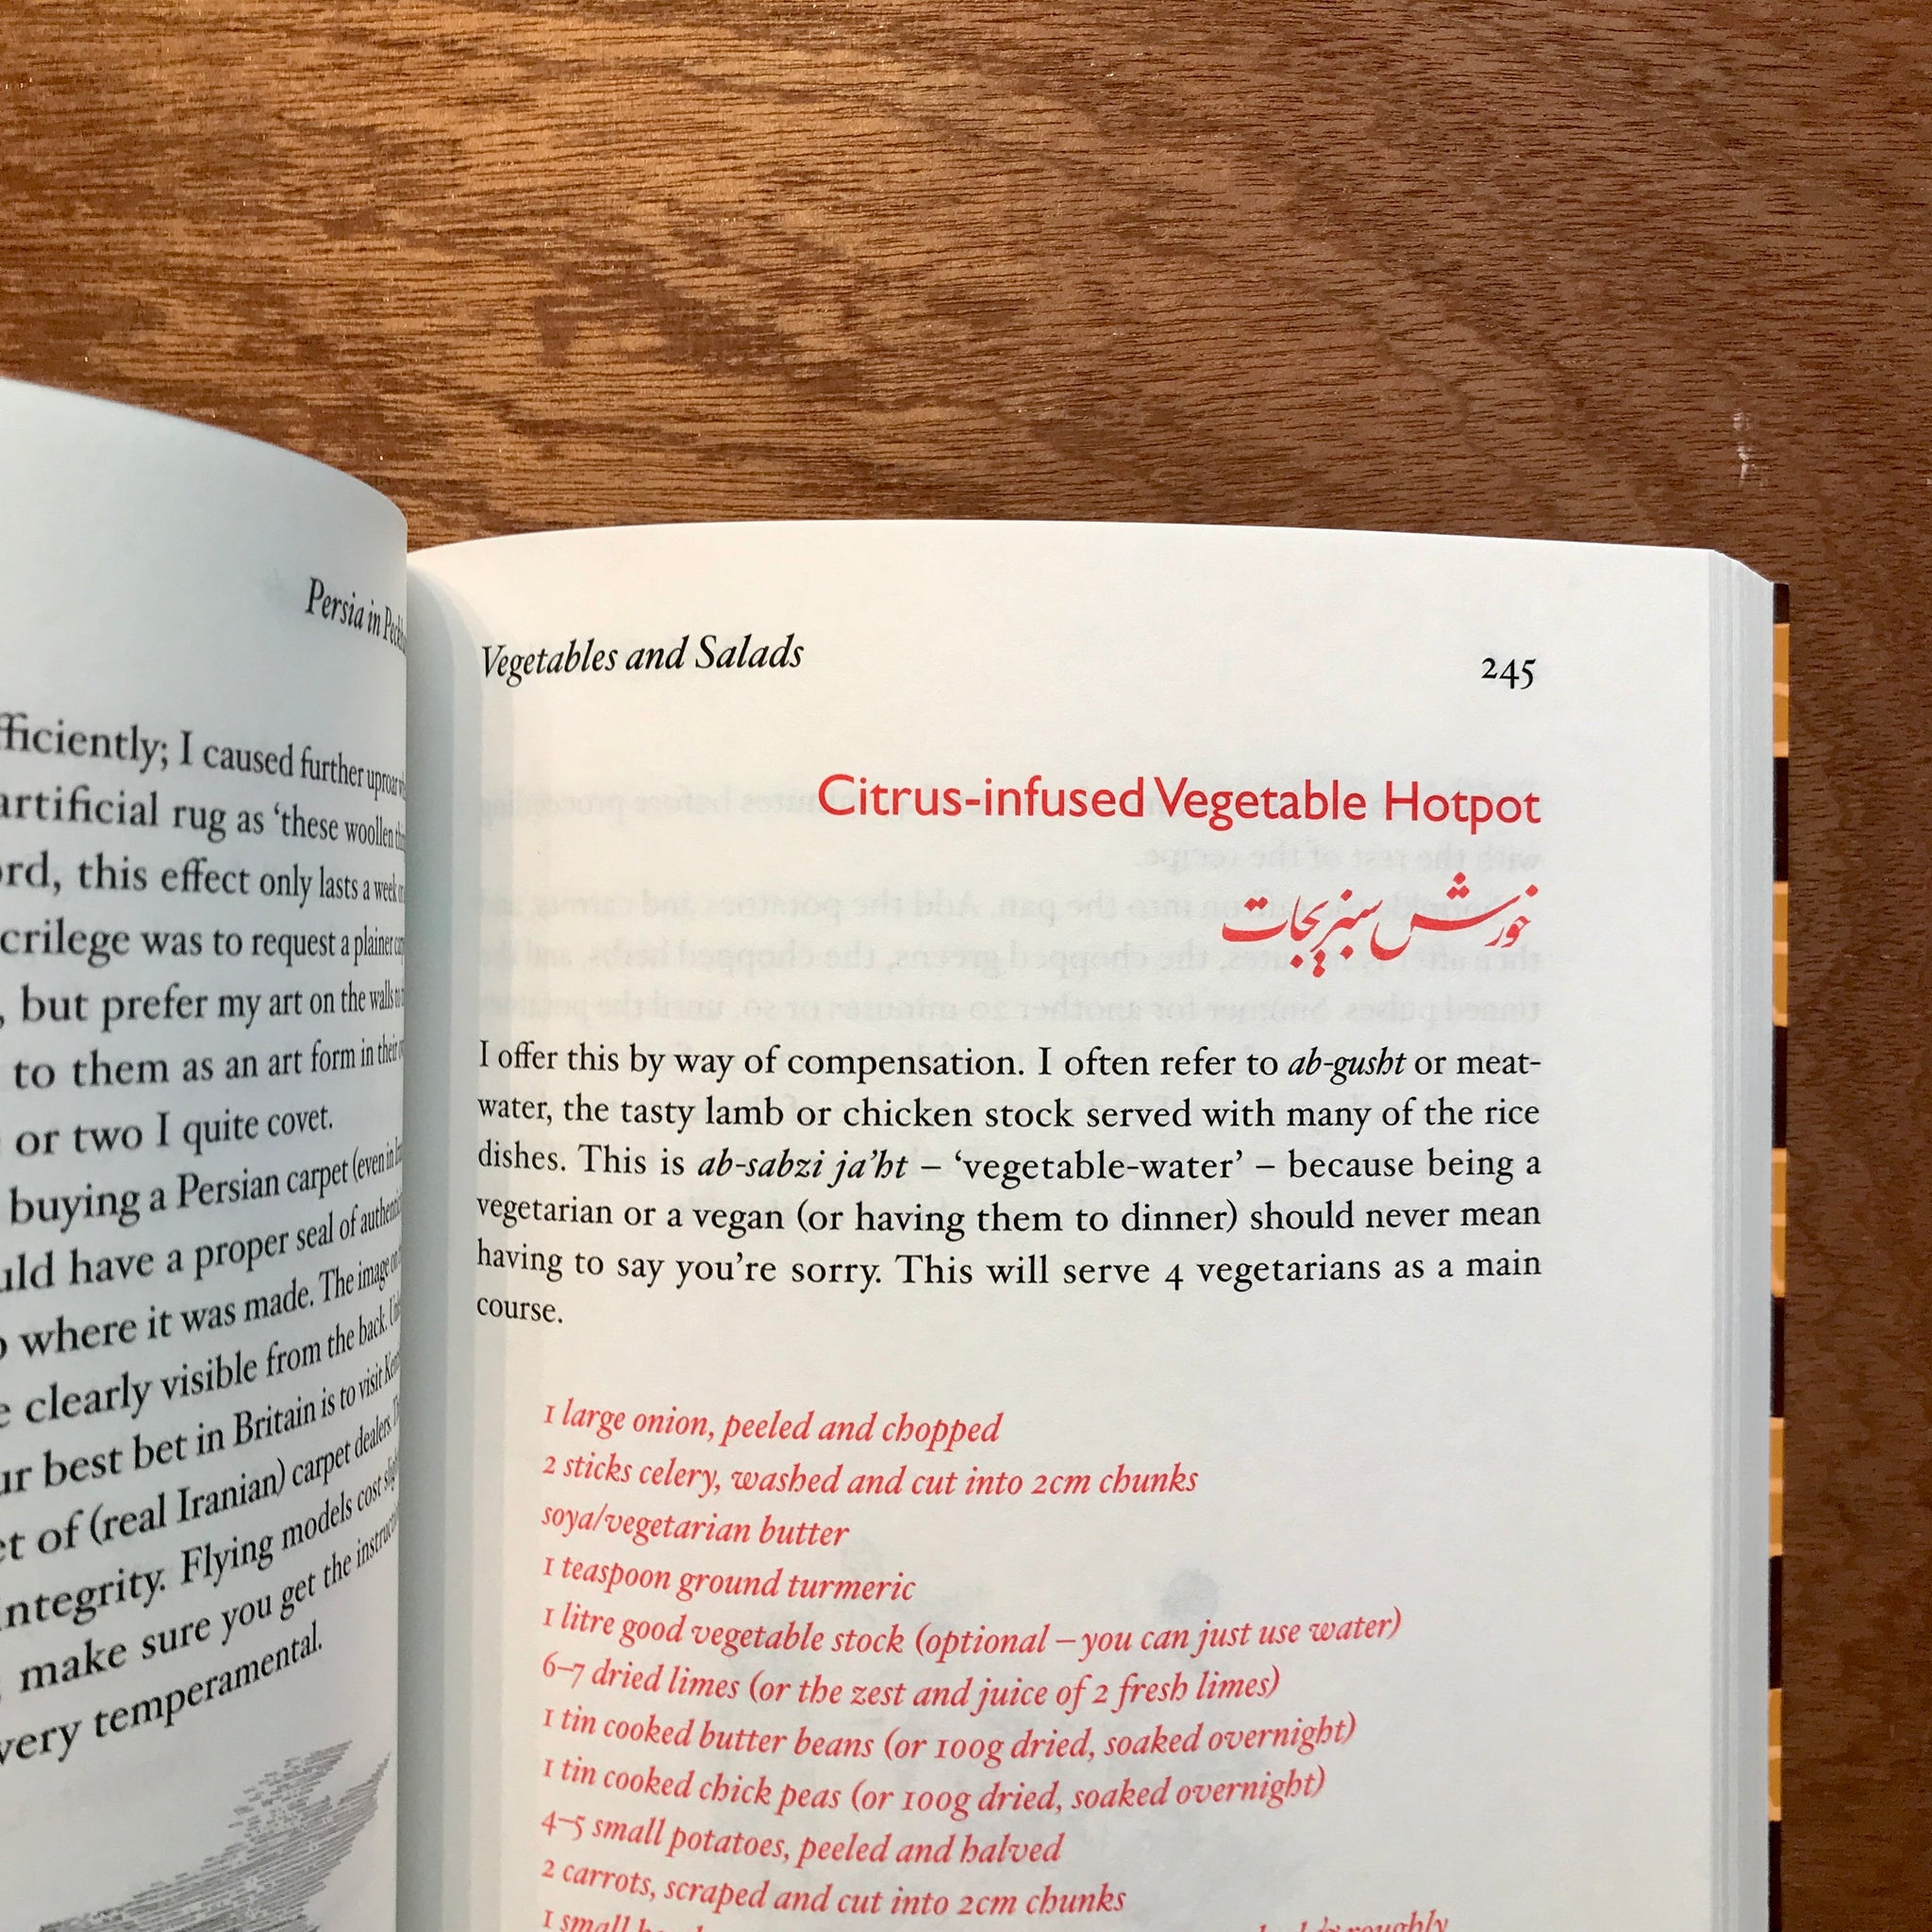 Persia in
ficiently; I caused further uproar
artificial rug as ‘these woollen
ord, this effect only lasts a week
crilege was to request a plainer
, but prefer my art on the walls
to them as an art form in their
or two I quite covet.
buying a Persian carpet (even in
uld have a proper seal of
where it was made. The image
clearly visible from the back.
ur best bet in Britain is to visit
et of (real Iranian) carpet dealers.
integrity. Flying models cost
make sure you get the
very temperamental.
Vegetables and Salads 245
Citrus-infused Vegetable Hotpot
خورش سبزیجات
I offer this by way of compensation. I often refer to ab-gusht or meat-
water, the tasty lamb or chicken stock served with many of the rice
dishes. This is ab-sabzi ja’ht – ‘vegetable-water’ – because being a
vegetarian or a vegan (or having them to dinner) should never mean
having to say you’re sorry. This will serve 4 vegetarians as a main
course.
1 large onion, peeled and chopped
2 sticks celery, washed and cut into 2cm chunks
soya/vegetarian butter
1 teaspoon ground turmeric
1 litre good vegetable stock (optional – you can just use water)
6–7 dried limes (or the zest and juice of 2 fresh limes)
1 tin cooked butter beans (or 100g dried, soaked overnight)
1 tin cooked chick peas (or 100g dried, soaked overnight)
4–5 small potatoes, peeled and halved
2 carrots, scraped and cut into 2cm chunks
1 small roughly